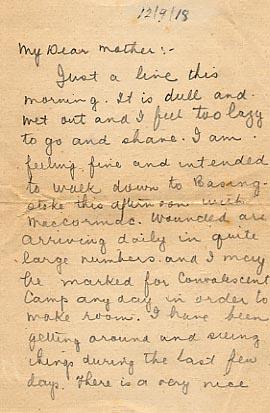 12/9/18
My Dear Mother:-
Just a line this
morning. It is dull and
wet out and I feel too lazy
to go and shave. I am
feeling fine and intended
to walk down to Basing-
stoke this afternoon with
MacCormac. Wounded are
arriving daily in quite
large numbers. and I may
be marked for Convalescent
Camp any day in order to
make room. I have been
getting around and seeing
things during the last few
days. There is a very nice